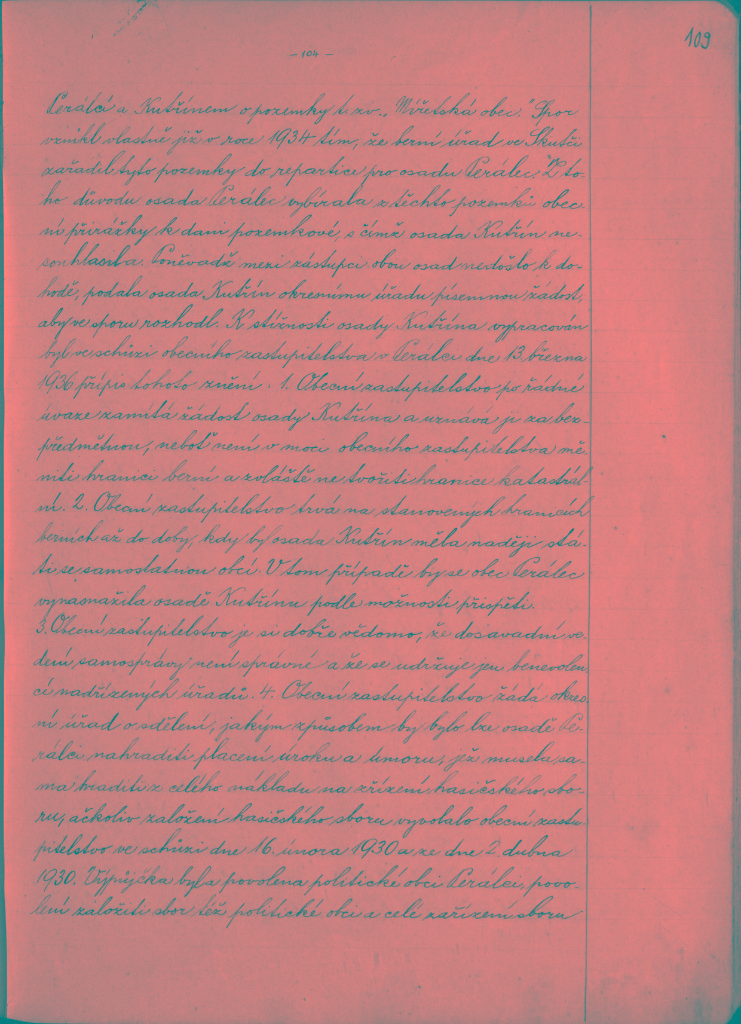 109
– 104 –
Perálcí a Kutřínem o pozemky t. zv. „Mířetská obec." Spor
vznikl vlastně již v roce 1934 tím, že berní úřad ve Skutči
zařadil tyto pozemky do repartice pro osadu Perálec. Z to-
ho důvodu osada Perálec vybírala z těchto pozemků obec-
ní přirážky k dani pozemkové, s čímž osada Kutřín ne-
souhlasila. Poněvadž mezi zástupci obou osad nedošlo k do-
hodě, podala osada Kutřín okresnímu úřadu písemnou žádost,
aby ve sporu rozhodl. K stížnosti osady Kutřína vypracován
byl ve schůzi obecního zastupitelstva v Perálci dne 13. března
1936 přípis tohoto znění: 1. Obecní zastupitelstvo po řádné
úvaze zamítá žádost osady Kutřína a uznává ji za bez-
předmětnou, neboť není v moci obecního zastupitelstva mě-
niti hranici berní a zvláště ne tvořiti hranice katastrál-
ní. 2. Obecní zastupitelstvo trvá na stanovených hranicích
berních až do doby, kdy by osada Kutřín měla naději stá-
ti se samostatnou obcí. V tom případě by se obec Perálec
vynasnažila osadě Kutřínu podle možnosti přispěti.
3. Obecní zastupitelstvo je si dobře vědomo, že dosavadní ve-
dení samosprávy není správné a že se udržuje jen benevolen-
cí nadřízených úřadů. 4. Obecní zastupitelstvo žádá okres-
ní úřad o sdělení, jakým způsobem by bylo lze osadě Pe-
rálci nahraditi placení úroku a úmoru, jež musela sa-
ma hraditi z celého nákladu na zřízení hasičského sbo-
ru, ačkoliv založení hasičského sboru vyvolalo obecní zastu-
pitelstvo ve schůzi dne 16. února 1930 a ze dne 2. dubna
1930. Výpůjčka byla povolena politické obci Perálci, povo-
lení založiti sbor též politické obci a celé zařízení sboru